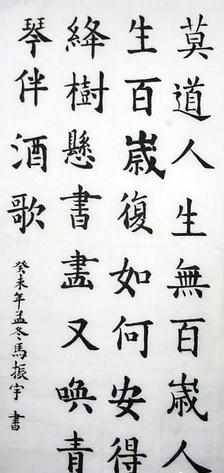 莫道人生無百歲人
生百歲復如何安得
絳樹懸書畫又喚青
琴伴酒歌
癸未年孟冬馬振宇書